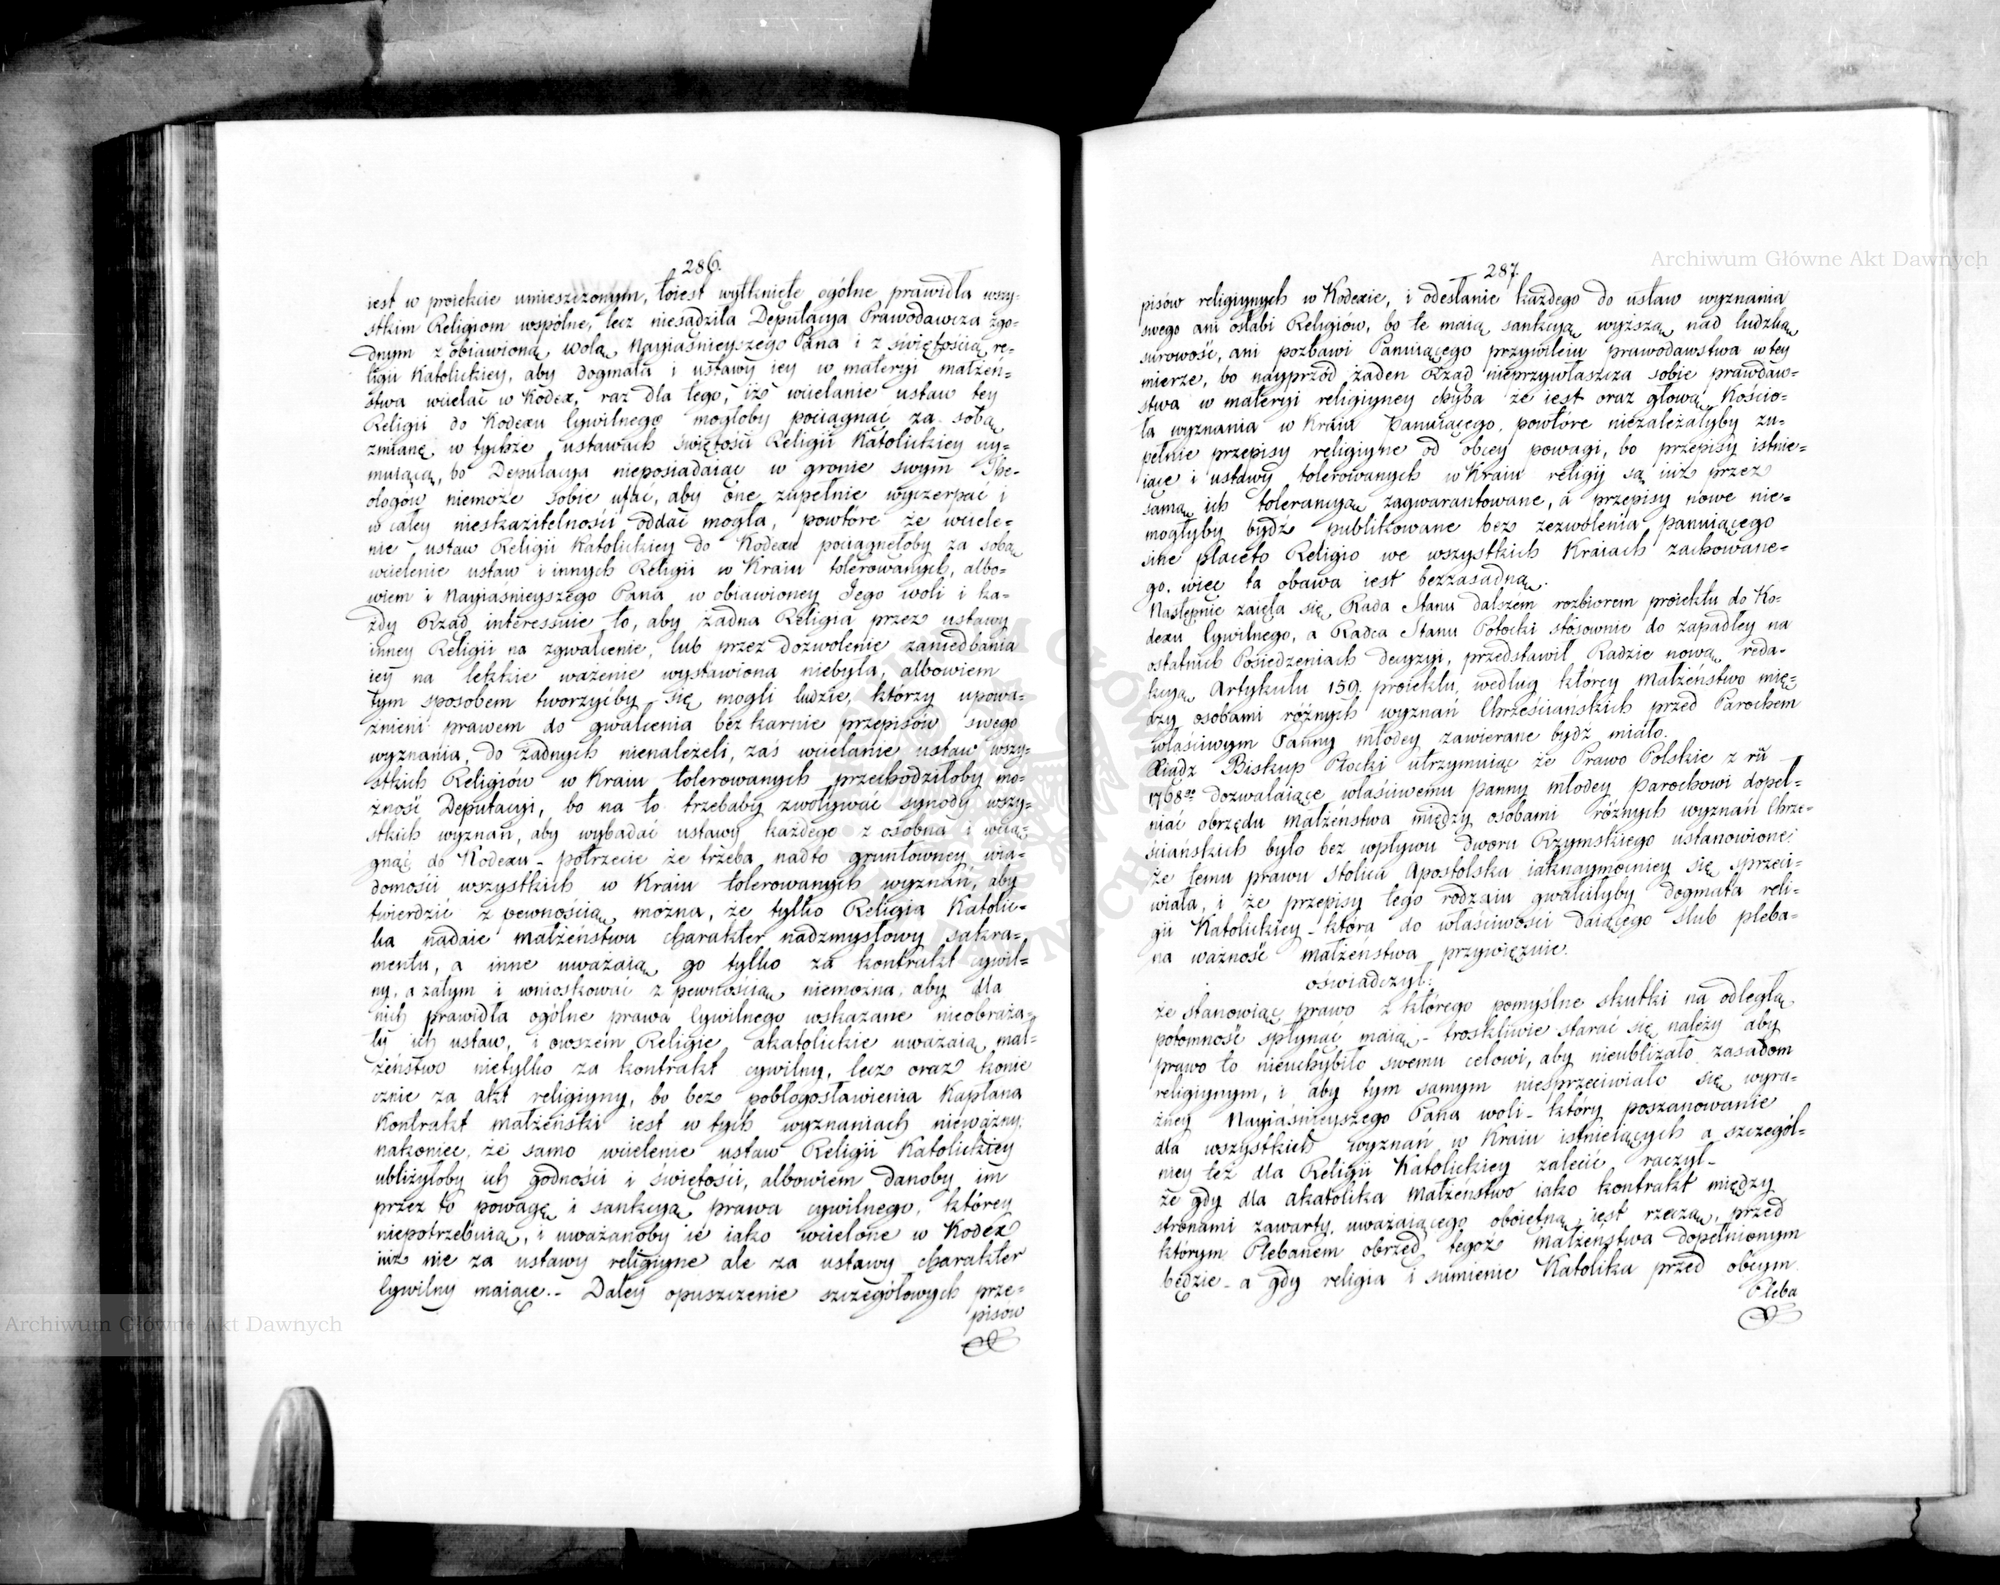 286.
iest w proiekcie umieszczonym, toiest wytknięte ogólne prawidła wszy-
stkim Religiom wspólne, lecz niesądziła Deputacya Prawodawcza zgo-
dnym z obiawioną wolą Nayiaśnieyszego Pana i z świętością re-
ligii Katolickiey, aby dogmata i ustawy iey w materyi małżeń-
stwa wcielać w Kodex, raz dla tego, iż wcielanie ustaw tey
Religii do Kodexu Cywilnego mogłoby pociągnąć za sobą
zmianę w tychże ustawach świętości Religii Katolickiey uy-
muiącą, bo Deputacya nieposiadaiąc w gronie swym The-
ologów niemoże sobie ufać, aby one zupełnie wyczerpać i
w całey nieskazitelności oddać mogła, powtóre że wciele-
nie ustaw Religii Katolickiey do Kodexu pociągnęłoby za sobą
wcielenie ustaw i innych Religii w Kraiu tolerowanych, albo-
wiem i Nayiaśnieyszego Pana w obiawioney Jego woli i ka-
żdy Rząd interessuie to, aby żadna Religia przez ustawy
inney Religii na zgwałcenie, lub przez dozwolenie zaniedbania
iey na lekkie ważenie wystawiona niebyła, albowiem
tym sposobem tworzyćby się mogli ludzie, którzy upowa-
żnieni prawem do gwałcenia bezkarnie przepisów swego
wyznania, do żadnych nienależeli, zaś wcielanie ustaw wszy-
stkich Religiów w Kraiu tolerowanych przechodziłoby mo-
żność Deputacyi, bo na to trzebaby zwoływać synody wszy-
stkich wyznań, aby wybadać ustawy każdego z osobna i wcią-
gnąć do Kodexu - potrzecie że trzeba nadto gruntowney wia-
domości wszystkich w Kraiu tolerowanych wyznań, aby
twierdzić z pewnością można, że tylko Religia Katolic-
ka nadaie małżeństwu charakter nadzmysłowy sakra-
mentu, a inne uważaią go tylko za kontrakt cywil-
ny, a zatym i wnioskować z pewnością niemożna, aby dla
nich prawidła ogólne prawa Cywilnego wskazane nieobraża-
ły ich ustaw, i owszem Religie akatolickie uważaią mał-
żeństwo nietylko za kontrakt cywilny, lecz oraz konie
cznie za akt religiyny, bo bez pobłogosławienia Kapłana
Kontrakt małżeński iest w tych wyznaniach nieważny,
nakoniec, że samo wcielenie ustaw Religii Katolickiey
ubliżyłoby ich godności i świętości, albowiem danoby im
przez to powagę i sankcyą prawa cywilnego, którey
niepotrzebuią, i uważanoby ie iako wcielone w Kodex
iuż nie za ustawy religiyne ale za ustawy charakter
Cywilny maiące. - Daley opuszczenie szczegółowych prze-
pisów
287.
pisów religiynych w Kodexie, i odesłanie każdego do ustaw wyznania
swego ani osłabi Religiów, bo te maią sankcyą wyższą nad ludzką
surowość, ani pozbawi Panuiącego przywileiu prawodawstwa w tey
mierze, bo nayprzód żaden Rząd nieprzywłaszcza sobie prawodaw-
stwa w materyi religiyney chyba że iest oraz głową Kościo-
ła wyznania w Kraiu panuiącego, powtóre niezależałyby zu-
pełnie przepisy religiyne od obcey powagi, bo przepisy istnie-
iące i ustawy tolerowanych w Kraiu religij są iuż przez
samą ich tolerancyą zagwarantowane, a przepisy nowe nie-
mogłyby bydź publikowane bez zezwolenia panuiącego
sine placeto Religio we wszystkich Kraiach zachowane-
go, więc ta obawa iest bezzasadną.
Następnie zaięła się Rada Stanu dalszém rozbiorem proiektu do Ko-
dexu Cywilnego, a Radca Stanu Potocki stósownie do zapadłey na
ostatnich Posiedzeniach decyzyi, przedstawił Radzie nową reda-
kcyą Artykułu 159. proiektu, według którey małżeństwo mię-
dzy osobami różnych wyznań Chrześciańskich przed Parochem
właściwym Panny młodey zawierane bydź miało.
Xiądz Biskup Płocki utrzymuiąc że Prawo Polskie z ru
1768go dozwalaiące właściwemu panny młodey Parochowi dopeł-
niać obrzędu małżeństwa między osobami różnych wyznań Chrze-
ściańskich było bez wpływu Dworu Rzymskiego ustanowione;
że temu prawu Stolica Apostolska iaknaymocniey się sprzeci-
wiała, i że przepisy tego rodzaiu gwałciłyby dogmata reli-
gii Katolickiey - która do właściwości daiącego ślub pleba-
na ważność małżeństwa przywięzuie.
oświadczył:
że stanowiąc prawo z którego pomyślne skutki na odległą
potomność spłynąć maią - troskliwie starać się należy aby
prawo to nieuchybiło swemu celowi, aby nieubliżało zasadom
religiynym, i aby tym samym niesprzeciwiało się wyra-
źney Nayiaśnieyszego Pana woli - który poszanowanie
dla wszystkich wyznań w Kraiu istnieiących a szczegól-
niey też dla Religii Katolickiey zalecić raczył -
że gdy dla akatolika małżeństwo iako kontrakt między
stronami zawarty, uważaiącego oboiętną iest rzeczą, przed
którym Plebanem obrzęd tegoż małżeństwa dopełnionym
będzie - a gdy religia i sumienie Katolika przed obcym
Pleba
Archiwum Główne Akt Dawnych
Archiwum Główne Akt Dawnych